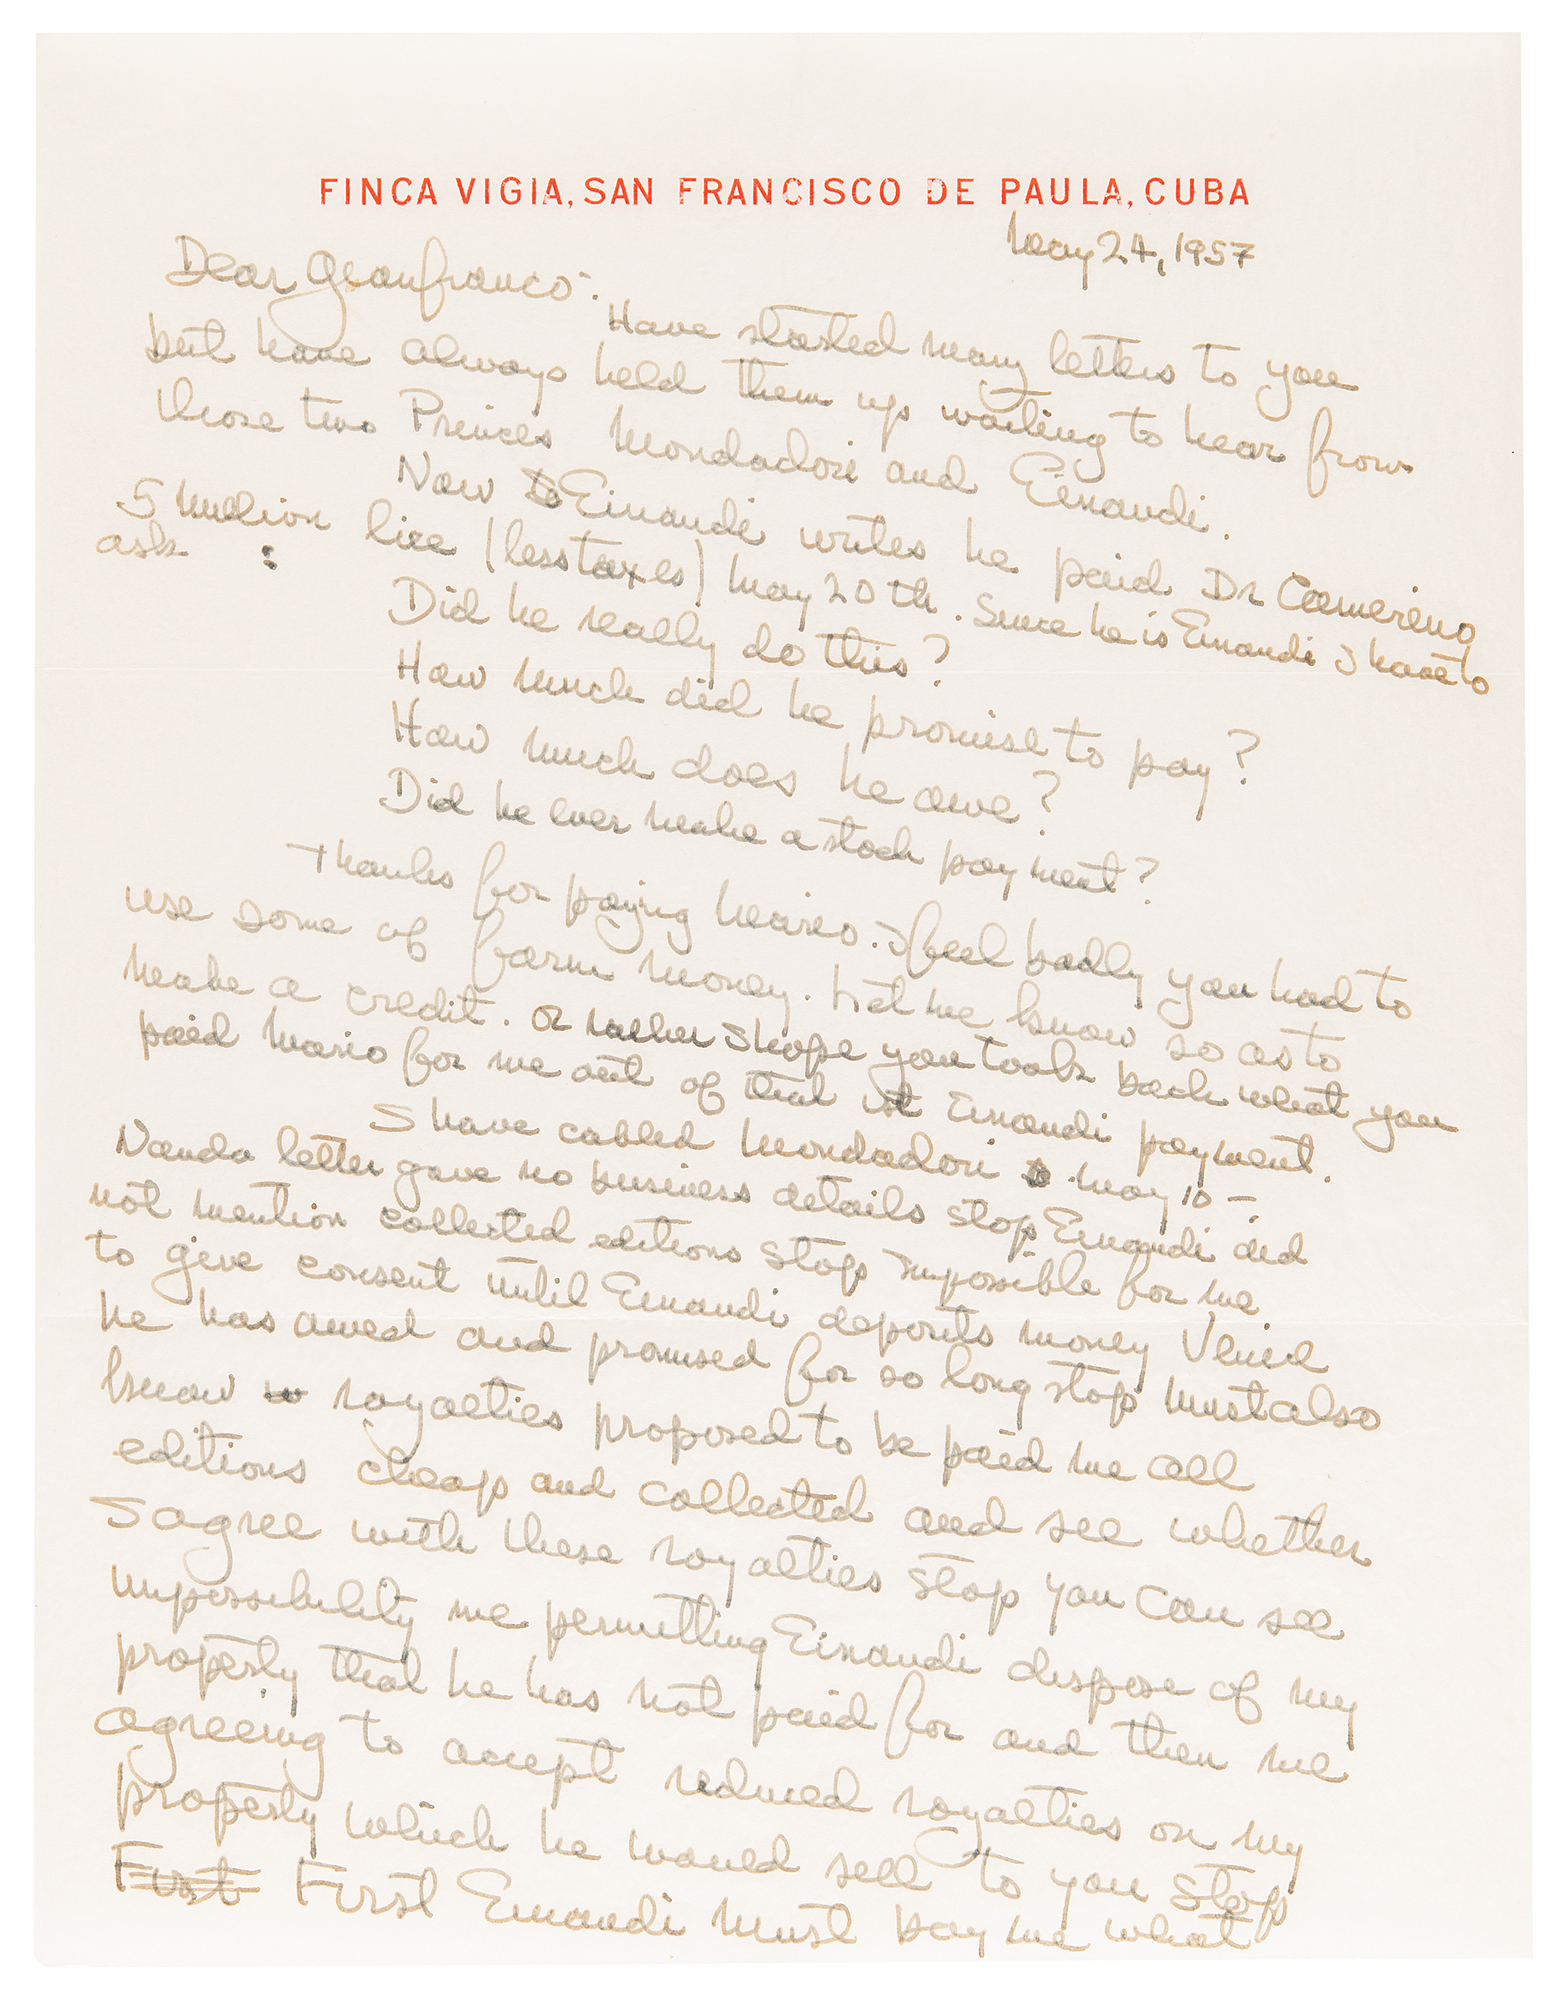 FINCA VIGIA, SAN FRANCISCO DE PAULA, CUBA
May 24, 1957
Dear Gianfranco:
Have started many letters to you
but have always held them up waiting to hear from
those two Princes Mondadori and Einaudi.
Now Einaudi writes he paid Dr Camerino
5 million lire (less taxes) May 20th. Since he is Einaudi I have to
ask :
Did he really do this?
How much did he promise to pay?
How much does he owe?
Did he ever make a stock payment?
Thanks for paying Mario. I feel badly you had to
use some of farm money. Let me know so as to
make a credit. Or rather I hope you took back what you
paid Mario for me out of that 1st Einaudi payment.
I have cabled Mondadori May 10 –
Nanda letter gave no business details stop Einaudi did
not mention collected editions stop impossible for me
to give consent until Einaudi deposits money Venice
he has owed and promised for so long stop must also
know royalties proposed to be paid me all
editions cheap and collected and see whether
I agree with these royalties stop you can see
impossibility me permitting Einaudi dispose of my
property that he has not paid for and then me
agreeing to accept reduced royalties on my
property which he would sell to you stop
First First Einaudi must pay me what